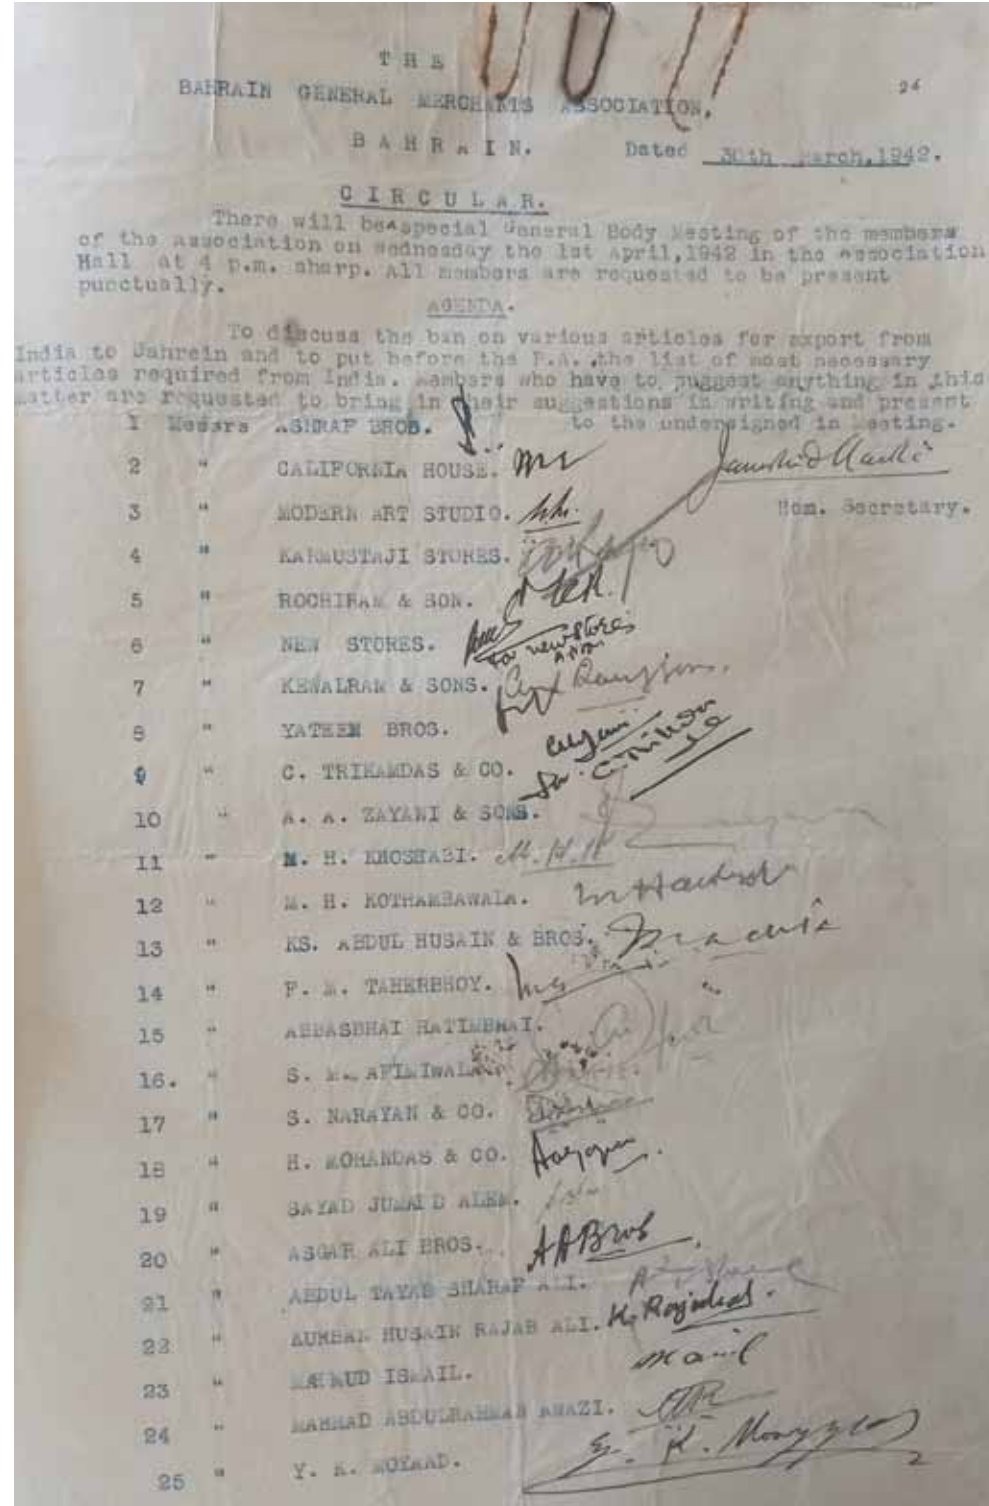 THE
26
BAHRAIN GENERAL MERCHANTS ASSOCIATION,
BAHRAIN. Dated 30th March,1942.
CIRCULAR.
There will be a special General Body Meeting of the members
of the association on Wednesday the 1st April,1942 in the association
Hall at 4 p.m. sharp. All members are requested to be present
punctually.
AGENDA.
To discuss the ban on various articles for export from
India to Bahrein and to put before the P.A. the list of most necessary
articles required from India. Members who have to suggest anything in this
matter are requested to bring in their suggestions in writing and present
to the undersigned in Meeting.
1 Messrs ASHRAF BROS.
2 " CALIFORNIA HOUSE.
Hon. Secretary.
3 " MODERN ART STUDIO.
4 " KARMUSTAJI STORES.
5 " ROCHIRAM & SON.
6 " NEW STORES.
for new stores
7 " KEWALRAM & SONS.
8 " YATEEM BROS.
9 " C. TRIKAMDAS & CO.
for
10 " A. A. ZAYANI & SONS.
11 " M. H. KHOSHABI. M.H.K
12 " M. H. KOTHAMBAWALA.
13 " KS. ABDUL HUSAIN & BROS.
14 " F. M. TAHERBHOY.
15 " ABBASBHAI HATIMBHAI.
16. " S. M.
17 " S. NARAYAN & CO.
18 " H. MOHANDAS & CO.
19 " SAYAD JUNAID ALEM.
20 " ASGAR ALI BROS. AABros
21 " ABDUL TAYAB SHARAF ALI.
22 " KURBAN HUSAIN RAJAB ALI. K. Rajabali.
23 " MAHMUD ISMAIL.
24 " MAHMAD ABDULRAHMAN
25 " Y. K. MOYAAD.